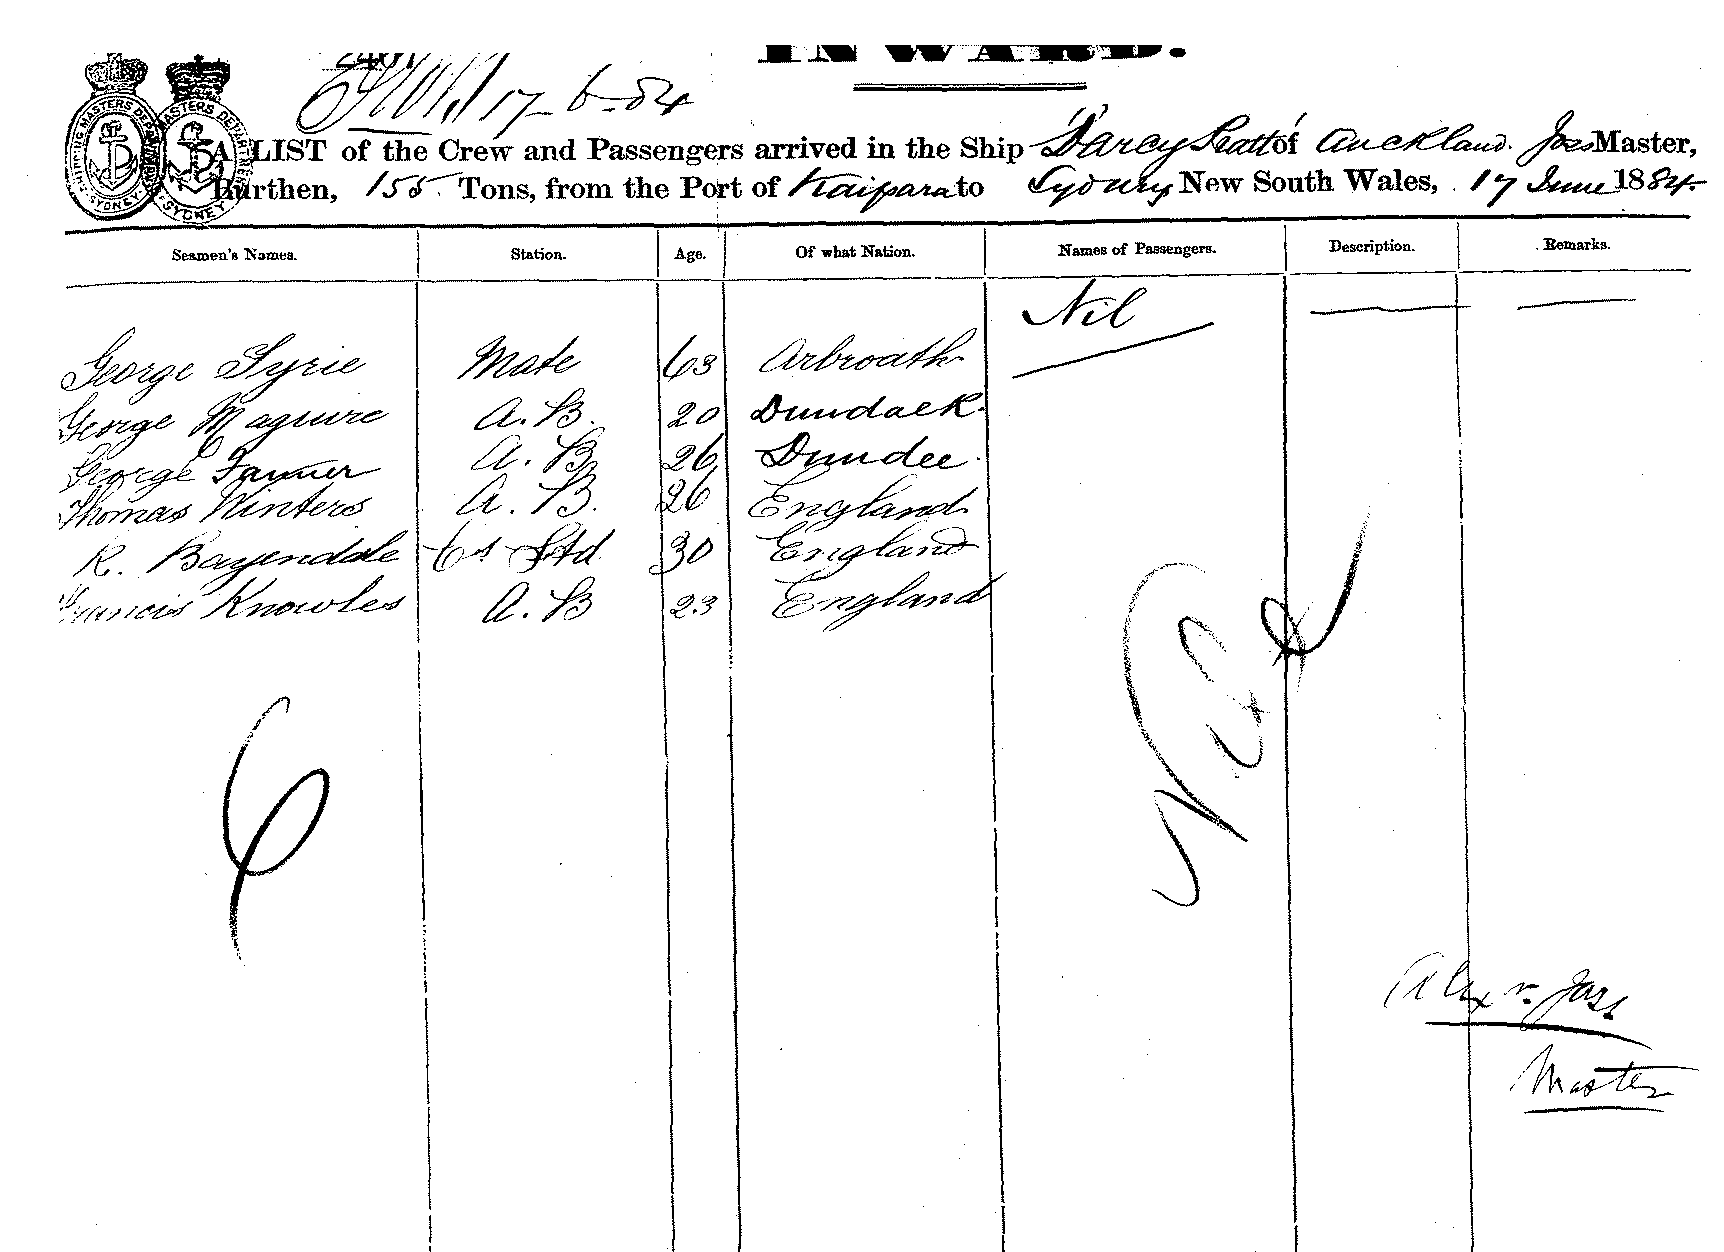 INWARD.
17-6-84
A LIST of the Crew and Passengers arrived in the Ship "Darcy Pratt" of Auckland. Joss Master,
Burthen, 155 Tons, from the Port of Kaipara to Sydney, New South Wales, 17 June 1884
Seamen's Names. Station. Age. Of what Nation. Names of Passengers. Description. Remarks.
Nil
George Syrie Mate 63 Arbroath
George Maguire A.B. 20 Dundalk
George A.B. 26 Dundee
Thomas Winters A.B. 26 England
R. Bayendale Std 30 England
Francis Knowles A.B 23 England
6
Nil
Alexr. Joss
Master